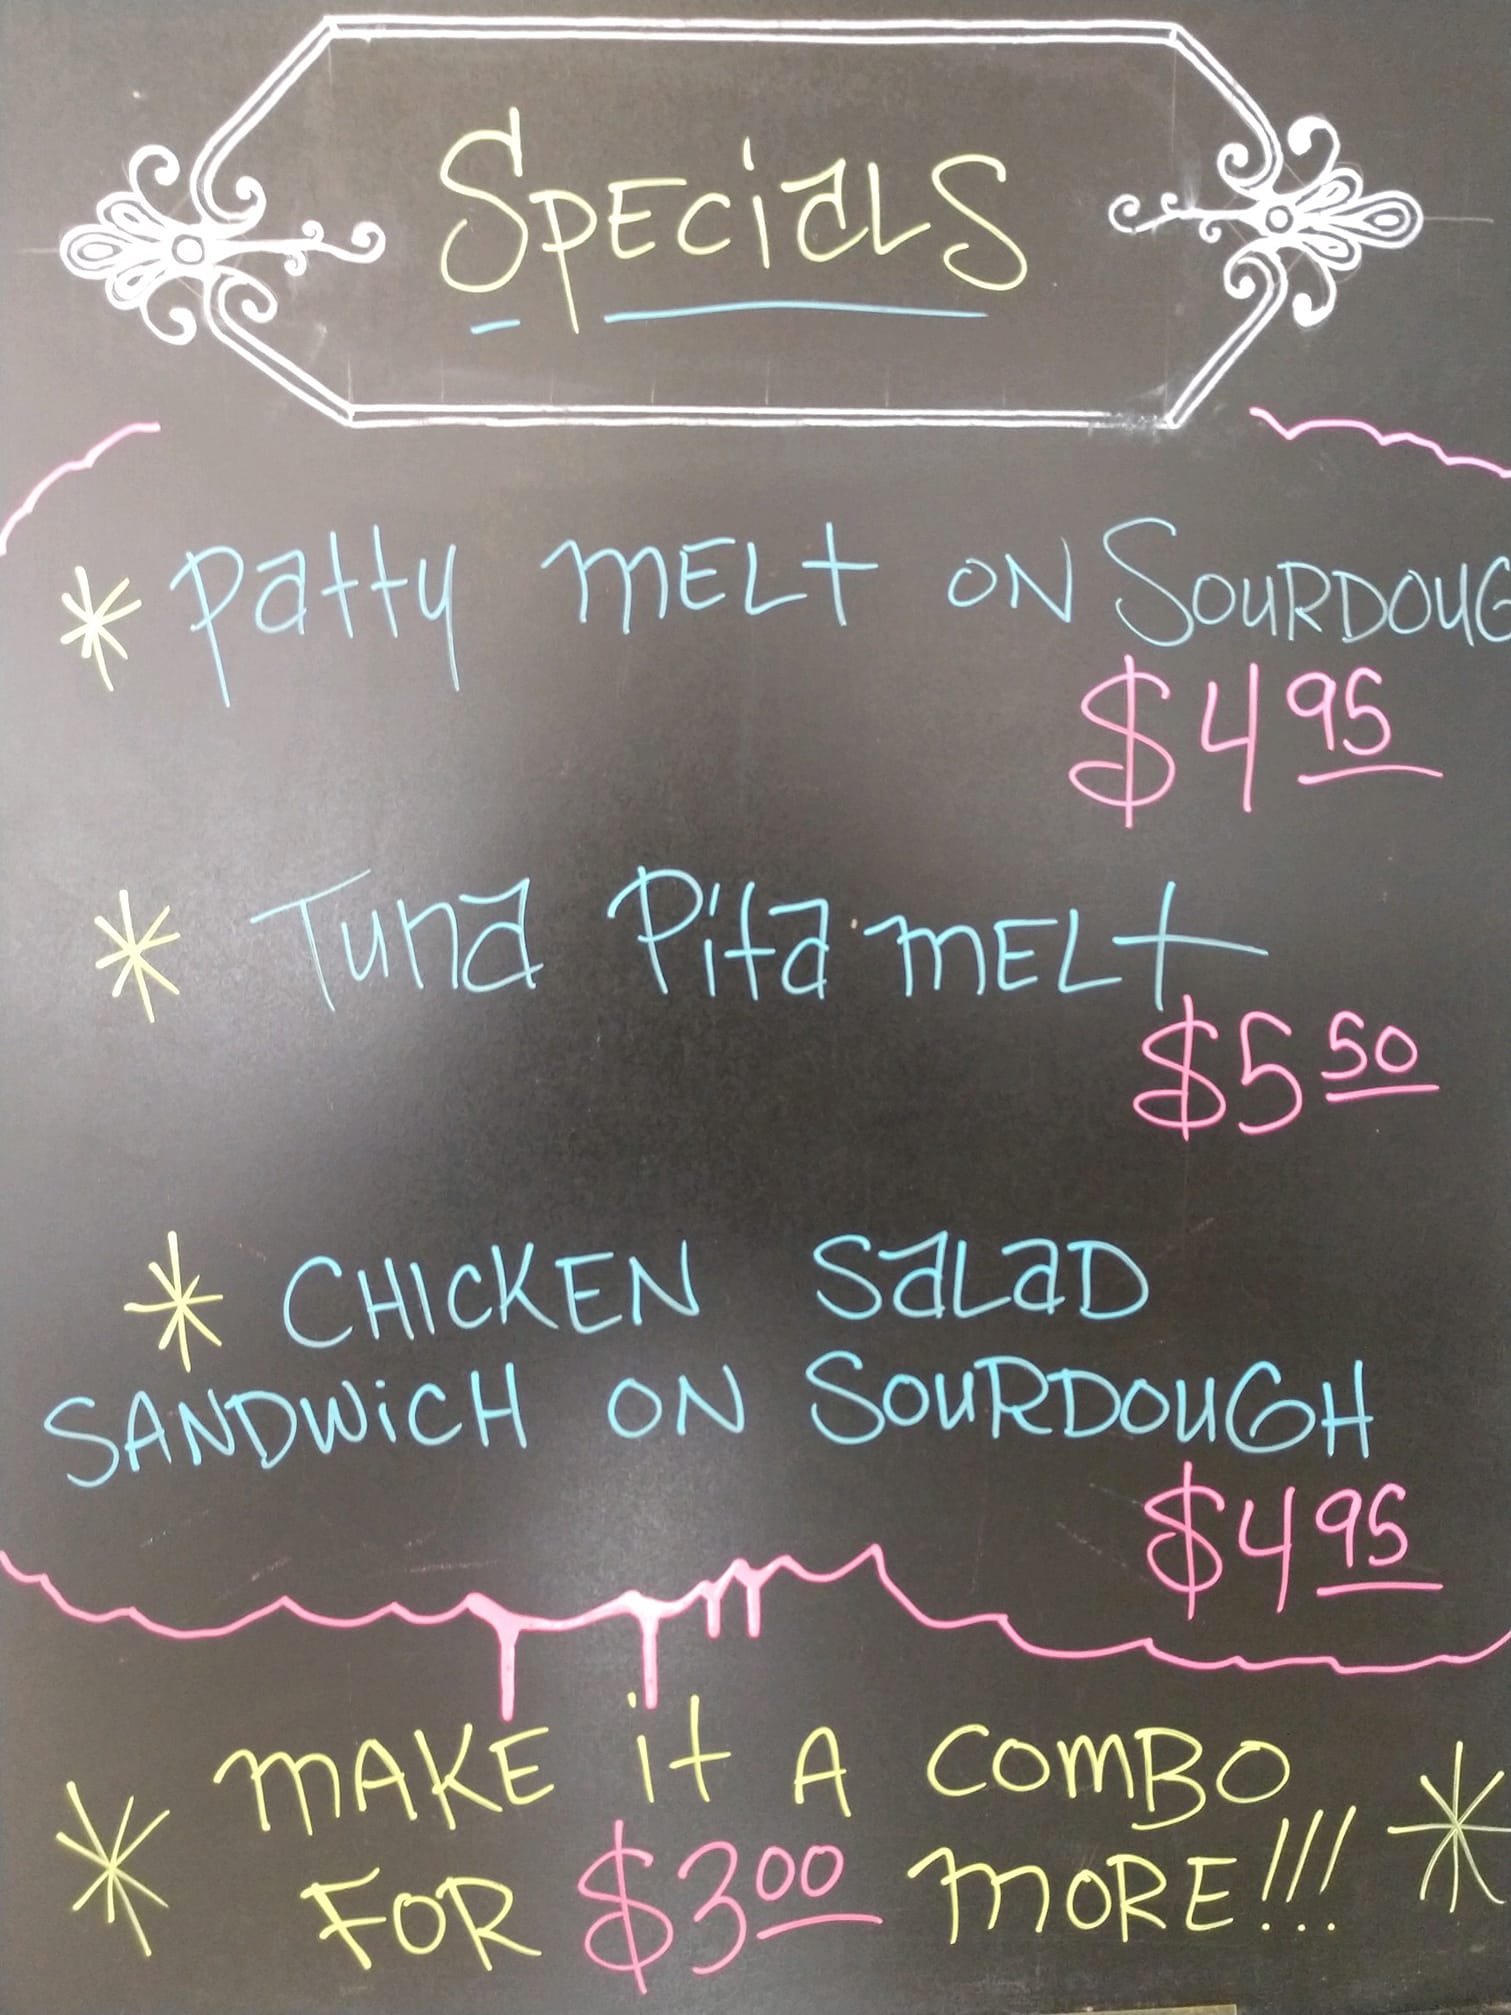 Specials
* Patty MELT ON SOURDOUG
$4.95
* Tuna Pita MELT
$5.50
* CHICKEN SALAD
SANDWiCH ON SOURDOUGH
$4.95
MAKE it A COMBO
* FOR $3.00 MORE!!! *